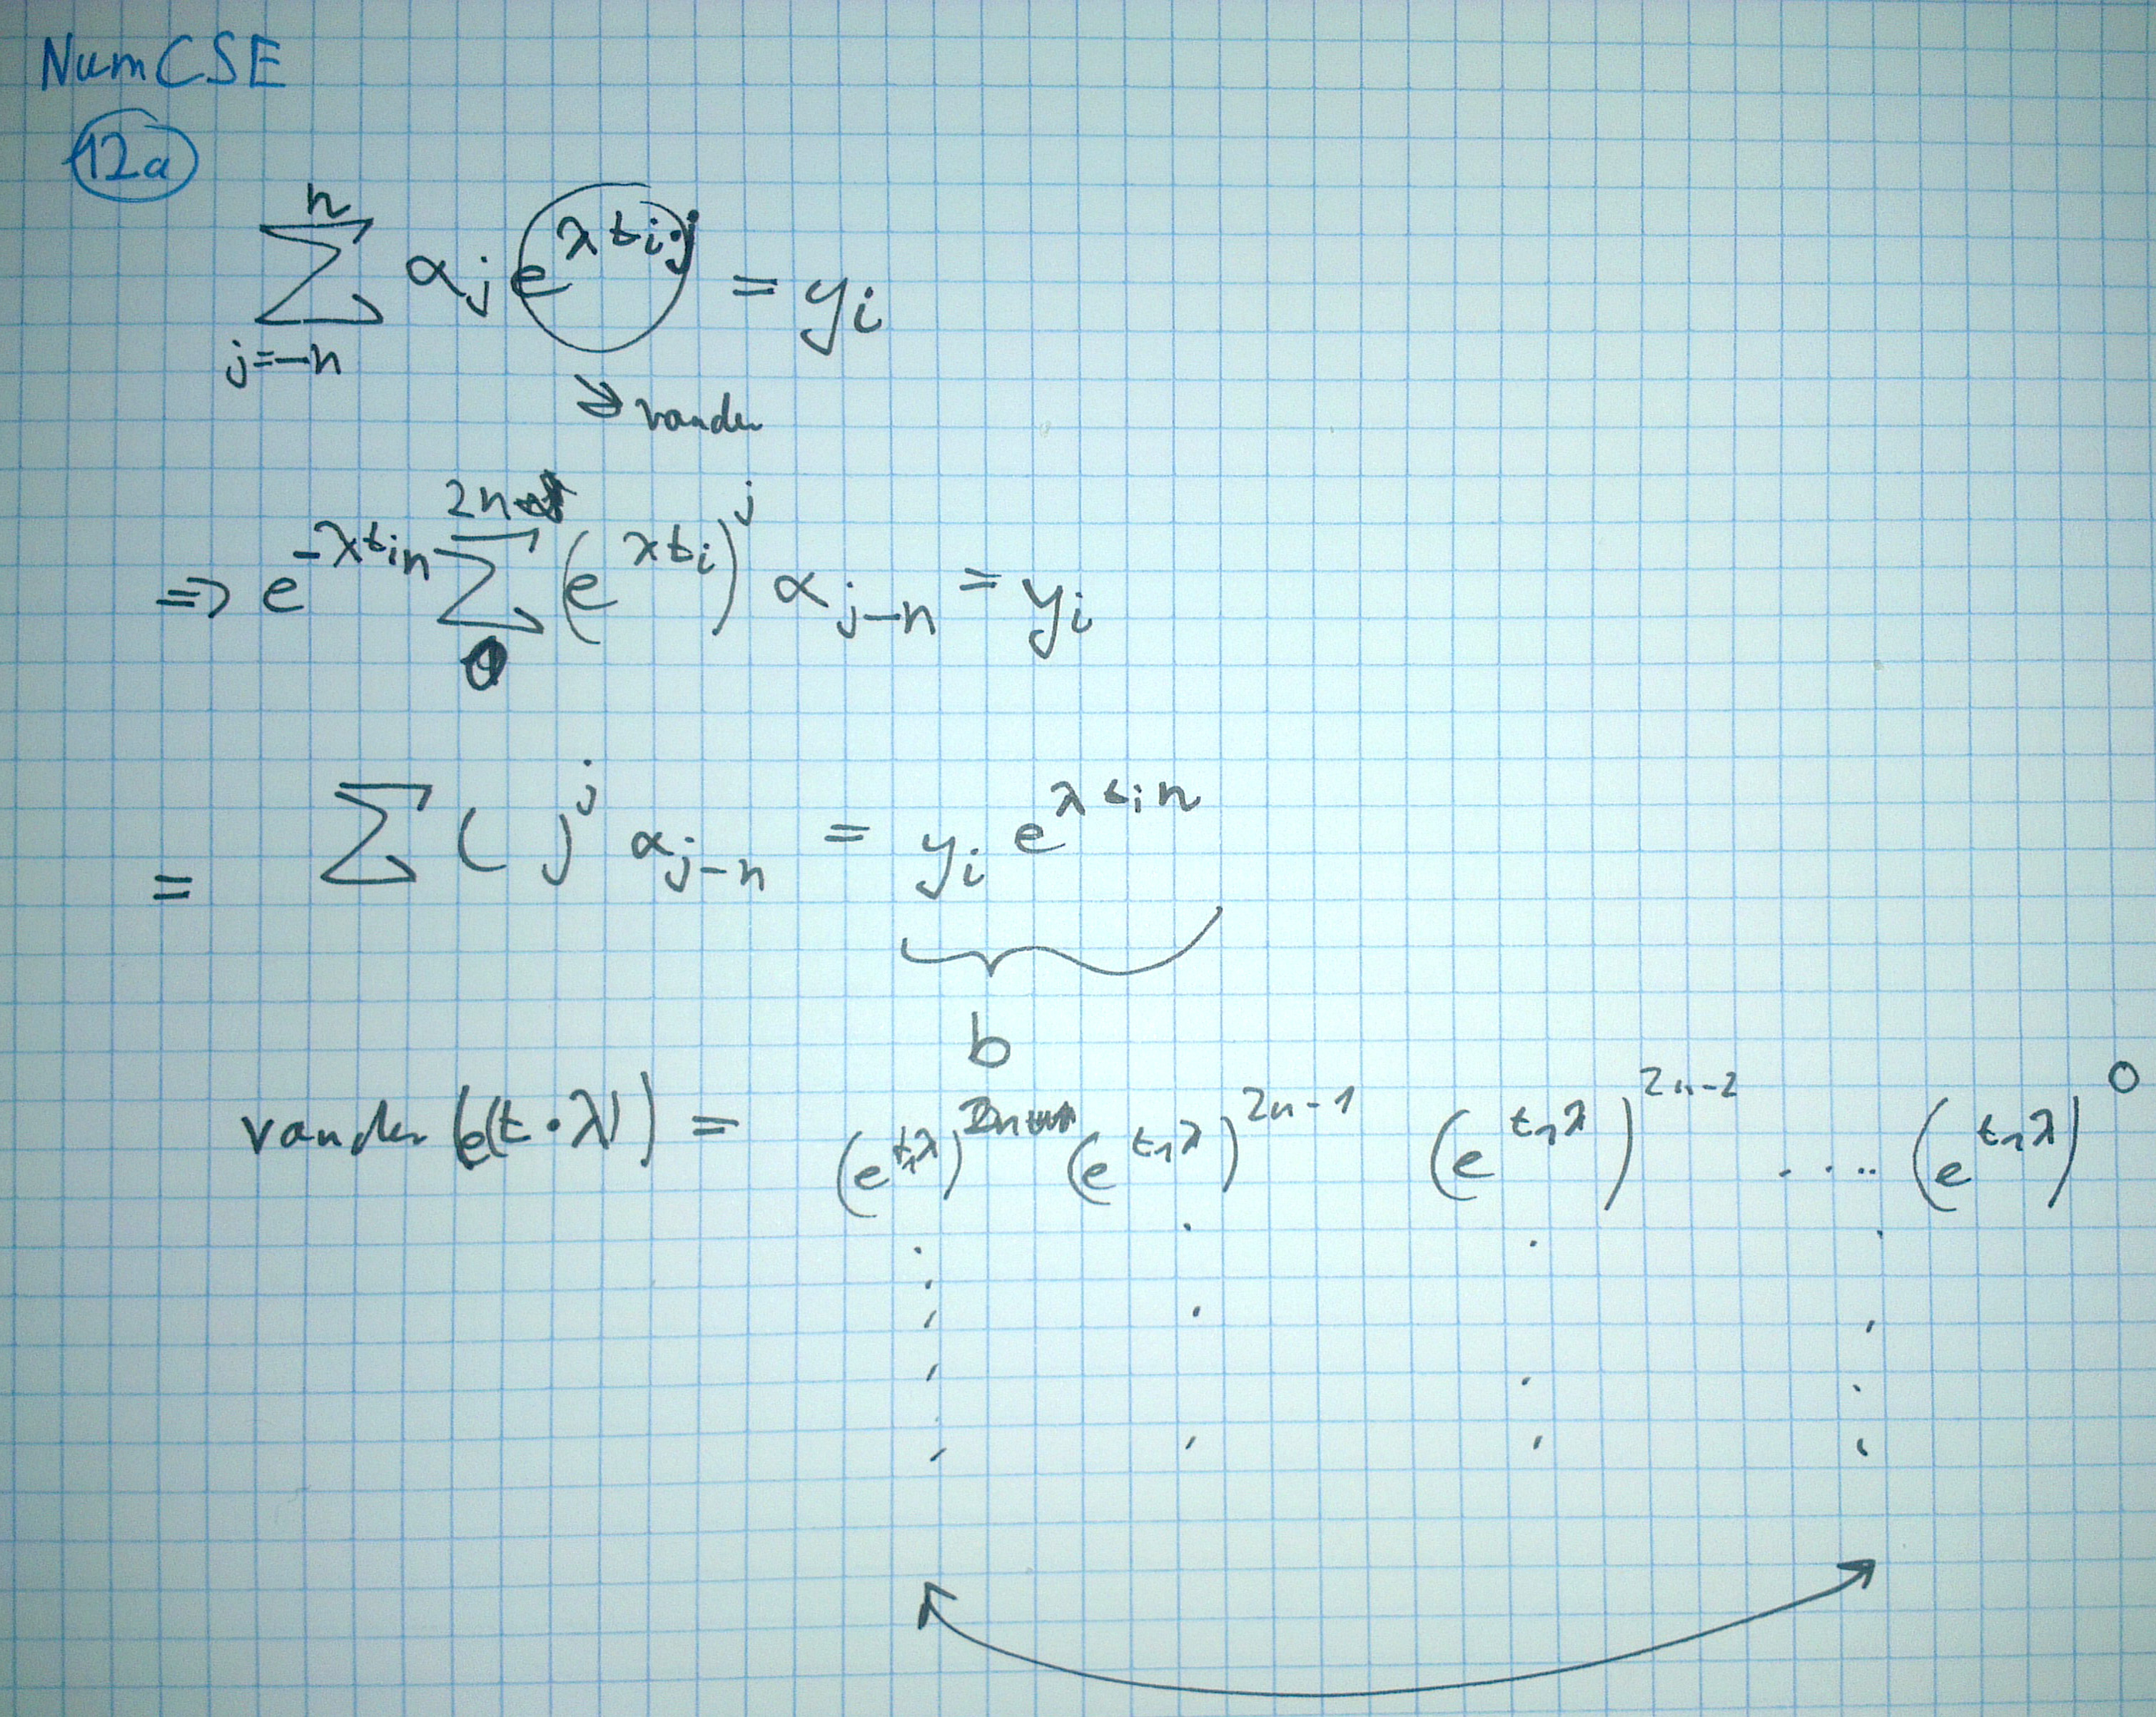 NumCSE
12a
n
∑ αj e^(λ ti·j) = yi
j=-n
↘ vander
⇒ e^(-λ ti n) ∑_0^(2n) (e^(λ ti))^j α_(j-n) = yi
= ∑ ( )^j α_(j-n) = yi e^(λ ti n)
b
vander (e(t·λ)) = (e^(t1λ))^(2n) (e^(t1λ))^(2n-1) (e^(t1λ))^(2n-2) .... (e^(t1λ))^0